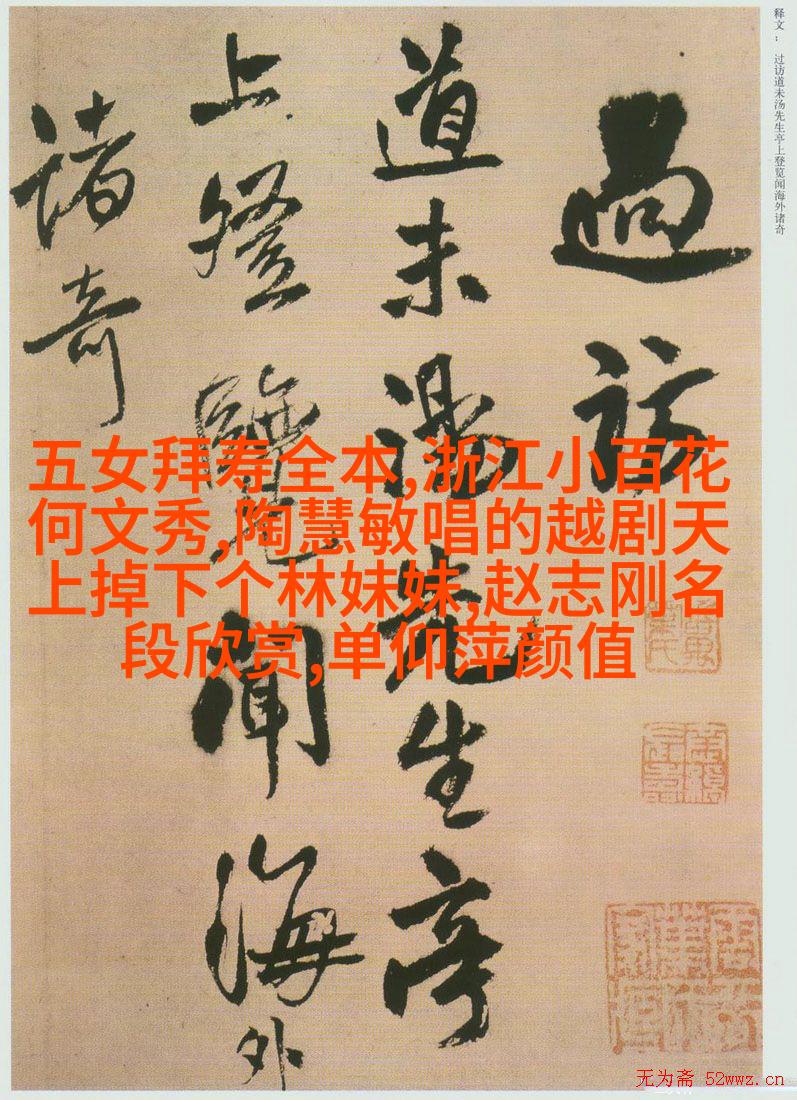 释文： 过访道未汤先生亭上登览闻海外诸奇
過訪
道未湯先生亭
上登覽聞海外
諸奇
五女拜寿全本,浙江小百花
何文秀,陶慧敏唱的越剧天
上掉下个林妹妹,赵志刚名
段欣赏,单仰萍颜值
无为斋 52wwz.cn